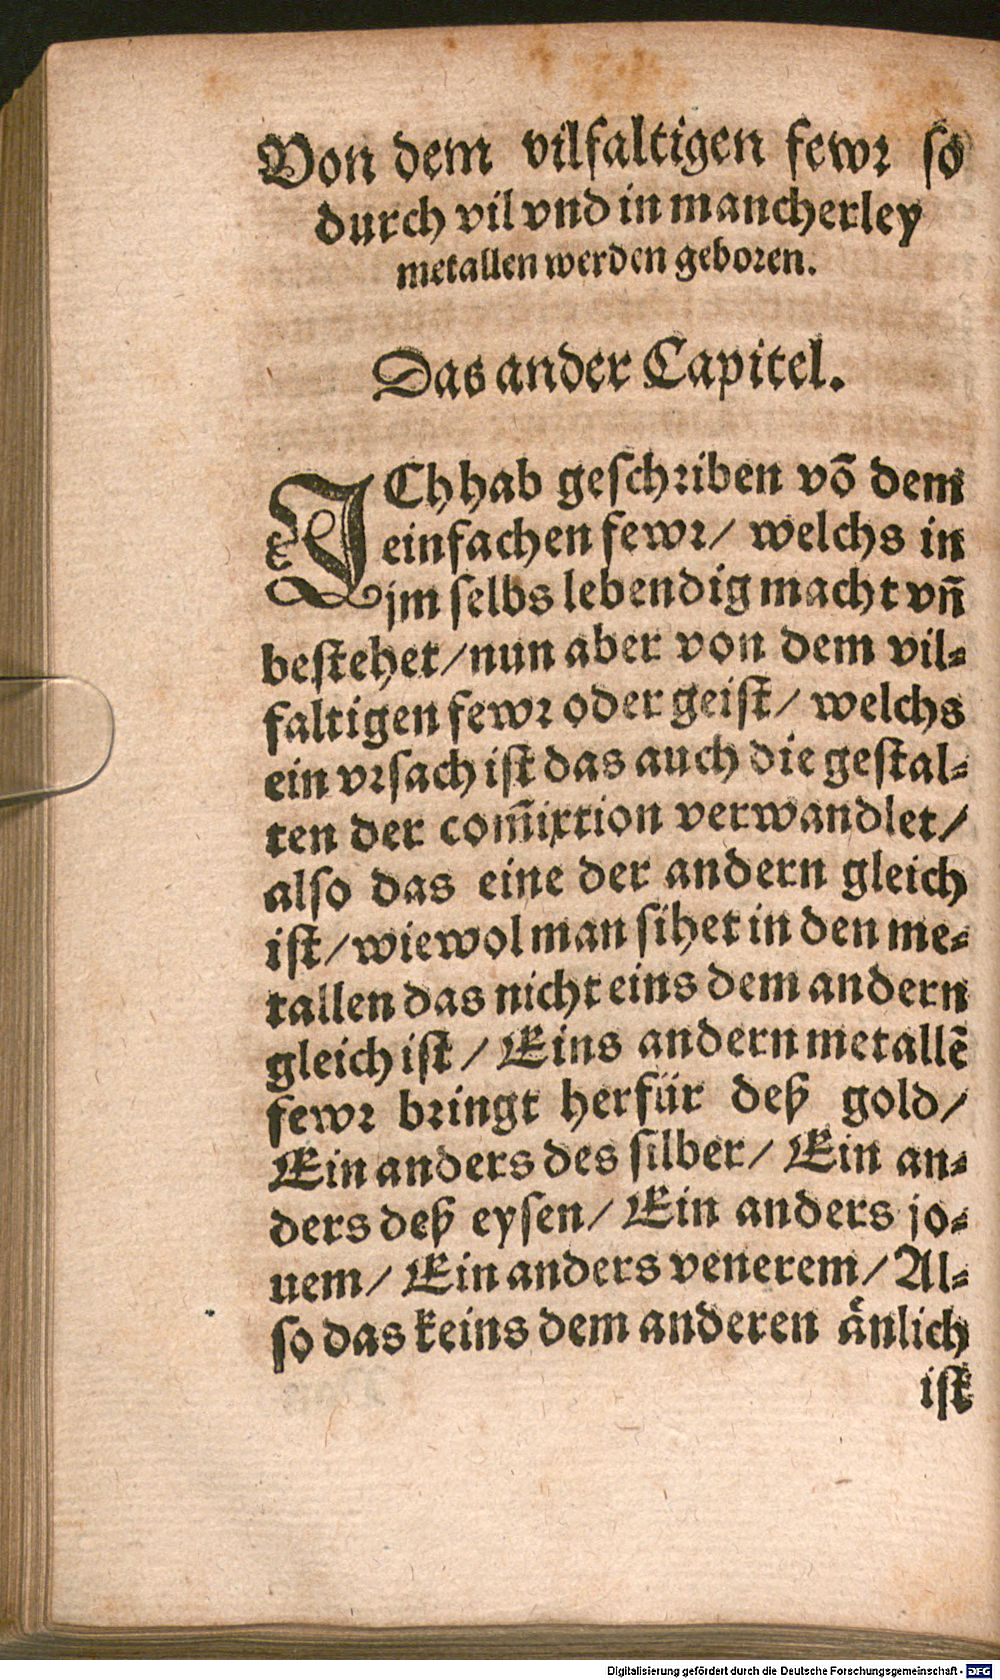 Von dem vilfaltigen fewr so
durch vil vnd in mancherley
metallen werden geboren.
Das ander Capitel.
ICh hab geschriben võ dem
einfachen fewr/ welchs in
jm selbs lebendig macht vñ
bestehet/nun aber von dem vil-
faltigen fewr oder geist/ welchs
ein vrsach ist das auch die gestal-
ten der com̃ixtion verwandlet/
also das eine der andern gleich
ist/wiewol man sihet in den me-
tallen das nicht eins dem andern
gleich ist / Eins andern metallẽ
fewr bringt herfür deß gold/
Ein anders des silber/ Ein an-
ders deß eysen/ Ein anders jo-
uem/ Ein anders venerem/ Al-
so das keins dem anderen ånlich
ist
Digitalisierung gefördert durch die Deutsche Forschungsgemeinschaft - DFG